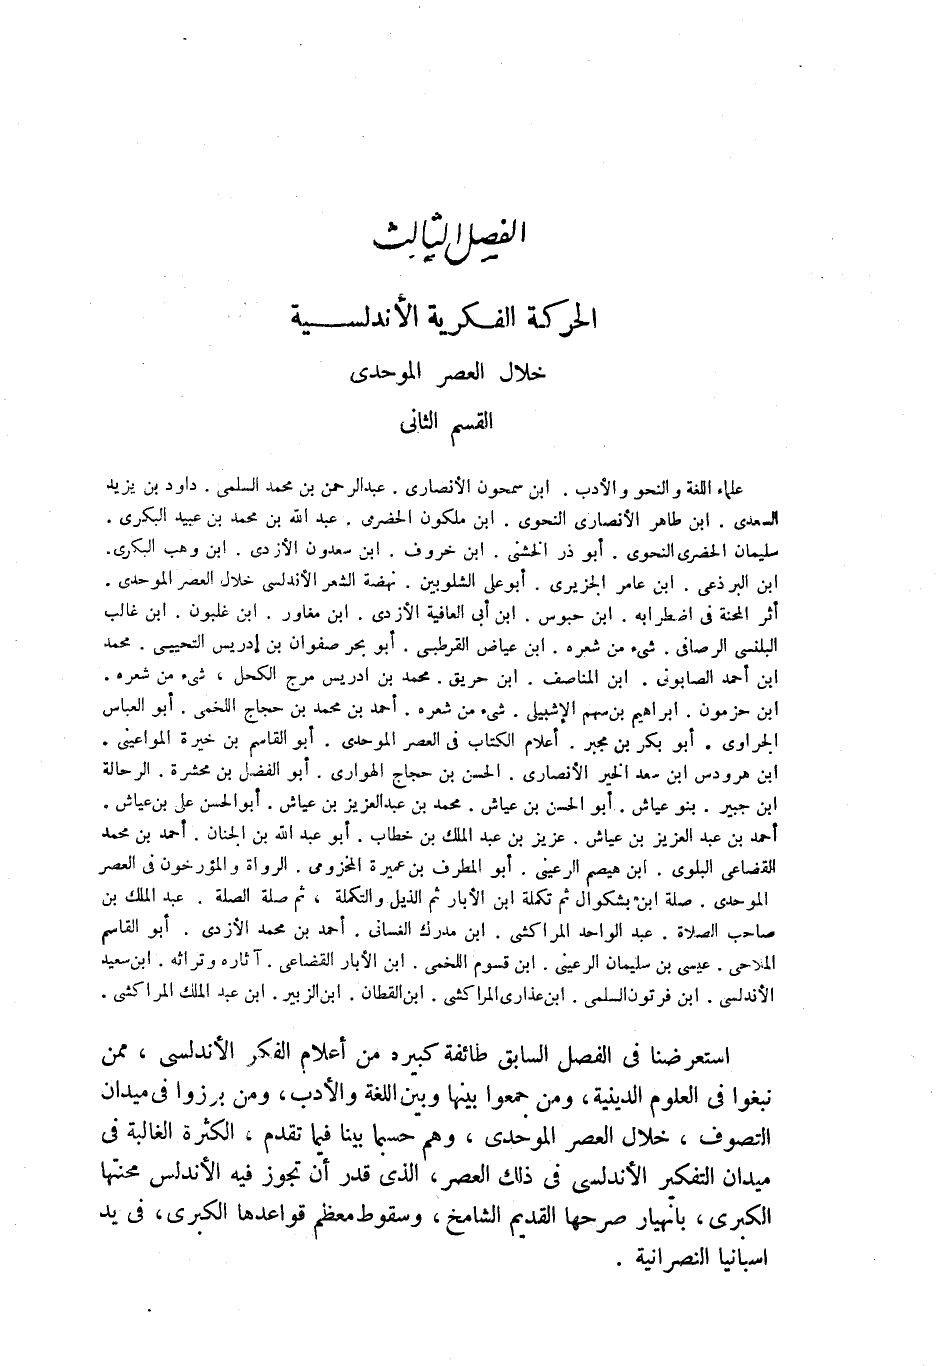 الفصل الثالث
الحركة الفكرية الأندلسية
خلال العصر الموحدى
القسم الثانى
علماء اللغة والنحو والأدب . ابن سمحون الأنصارى . عبدالرحمن بن محمد السلمى . داود بن يزيد
السعدى . ابن طاهر الأنصارى النحوى . ابن ملكون الحضرمى . عبد الله بن محمد بن عبيد البكرى .
سليمان الحضرى النحوى . أبو ذر الخشنى . ابن خروف . ابن سعدون الأزدى . ابن وهب البكرى .
ابن البرذعى . ابن عامر الجزيرى . أبوعلى الشلوبين . نهضة الشعر الأندلسى خلال العصر الموحدى .
أثر المحنة فى اضطرابه . ابن حبوس . ابن أبى العافية الأزدى . ابن مغاور . ابن غلبون . ابن غالب
البلنسى الرصافى . شىء من شعره . ابن عياض القرطبى . أبو بحر صفوان بن إدريس التجيبى . محمد
ابن أحمد الصابونى . ابن المناصف . ابن حريق . محمد بن ادريس مرج الكحل ، شىء من شعره .
ابن حزمون . ابراهيم بن سهم الإشبيلى . شىء من شعره . أحمد بن محمد بن حجاج اللخمى . أبو العباس
الجراوى . أبو بكر بن مجبر . أعلام الكتاب فى العصر الموحدى . أبو القاسم بن خيرة المواعينى .
ابن هرودس ابن سعد الخير الأنصارى . الحسن بن حجاج الهوارى . أبو الفضل بن محشرة . الرحالة
ابن جبير . بنو عياش . أبو الحسن بن عياش . محمد بن عبدالعزيز بن عياش . أبوالحسن على بن عياش .
أحمد بن عبد العزيز بن عياش . عزيز بن عبد الملك بن خطاب . أبو عبد الله بن الجنان . أحمد بن محمد
القضاعى البلوى . ابن هيصم الرعينى . أبو المطرف بن عميرة المخزومى . الرواة والمؤرخون فى العصر
الموحدى . صلة ابن بشكوال ثم تكملة ابن الأبار ثم الذيل والتكملة ، ثم صلة الصلة . عبد الملك بن
صاحب الصلاة . عبد الواحد المراكشى . ابن مدرك الغسانى . أحمد بن محمد الأزدى . أبو القاسم
الملاحى . عيسى بن سليمان الرعينى . ابن قسوم اللخمى . ابن الأبار القضاعى . آثاره وتراثه . ابن سعيد
الأندلسى . ابن فرتون السلمى . ابن عذارى المراكشى . ابن القطان . ابن الزبير . ابن عبد الملك المراكشى .
استعرضنا فى الفصل السابق طائفة كبيره من أعلام الفكر الأندلسى ، ممن
نبغوا فى العلوم الدينية ، ومن جمعوا بينها وبين اللغة والأدب ، ومن برزوا فى ميدان
التصوف ، خلال العصر الموحدى ، وهم حسبما بينا فيما تقدم ، الكثرة الغالبة فى
ميدان التفكير الأندلسى فى ذلك العصر ، الذى قدر أن تجوز فيه الأندلس محنتها
الكبرى ، بانهيار صرحها القديم الشامخ ، وسقوط معظم قواعدها الكبرى ، فى يد
اسبانيا النصرانية .